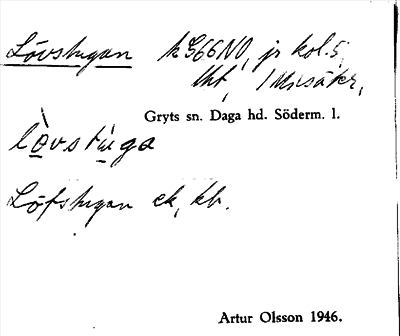 Lövstugan k 366 NO, jr kol. 5,
tht, 1 Misäkr,
Gryts sn. Daga hd. Söderm. l.
lòvstúga
Löfstugan ek, kb.
Artur Olsson 1946.